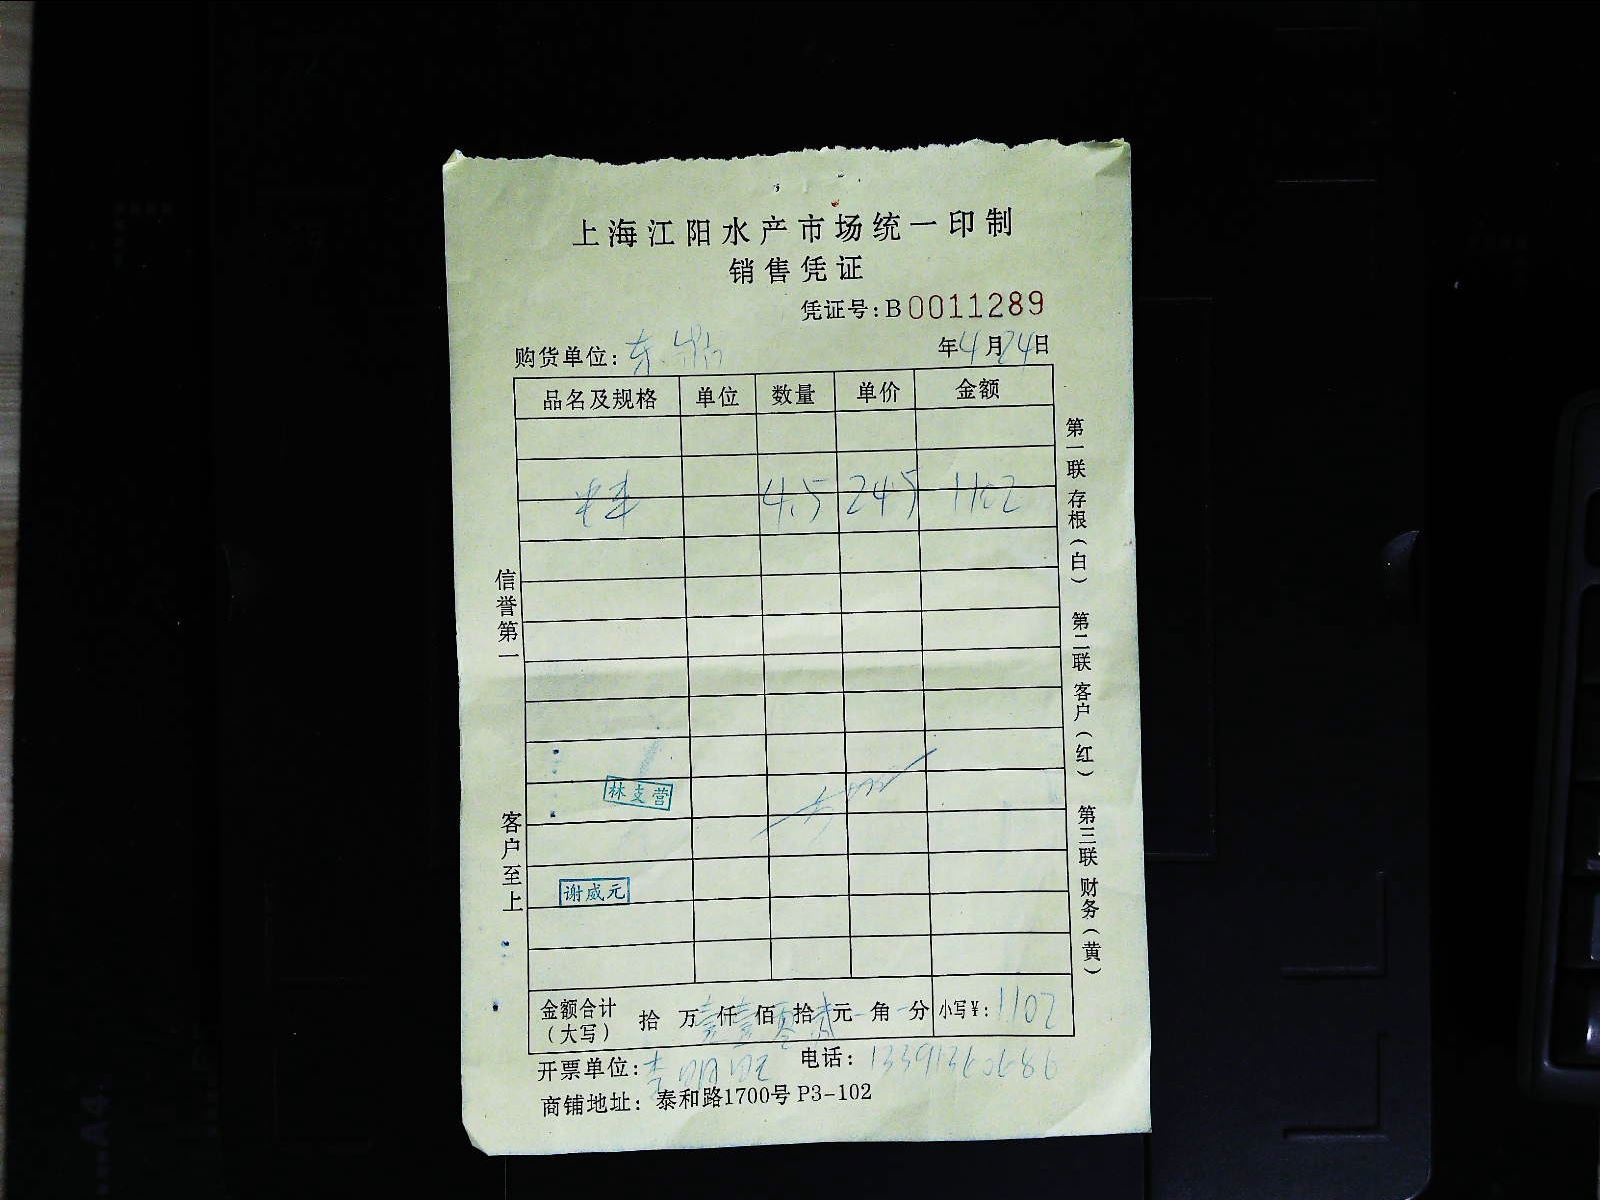 上海江阳水产市场统一印制
销售凭证
凭证号:B0011289
购货单位: 东
年4月24日
品名及规格 单位 数量 单价 金额
4.5 245 1102
林支营
谢威元
金额合计(大写) 拾 万壹仟壹佰零拾贰元-角-分 小写¥:1102
开票单位:李明 电话:
商铺地址: 泰和路1700号 P3-102
信誉第一
客户至上
第一联 存根(白) 第二联 客户(红) 第三联 财务(黄)